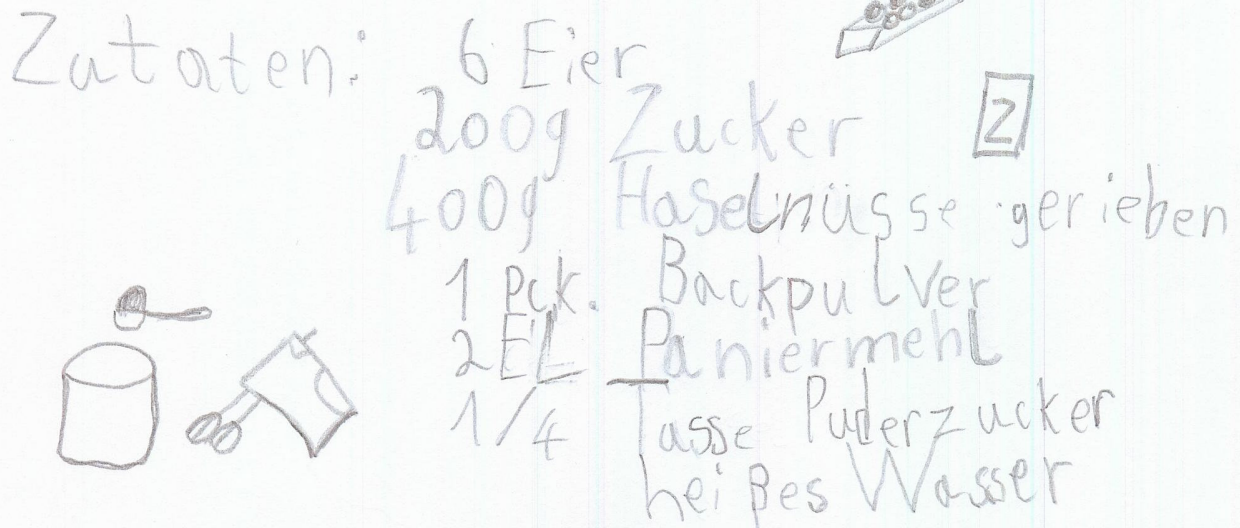 Zutaten: 6 Eier
200g Zucker
Z
400g Haselnüsse gerieben
1 Pck. Backpulver
2 EL Paniermehl
1/4 Tasse Puderzucker
heißes Wasser